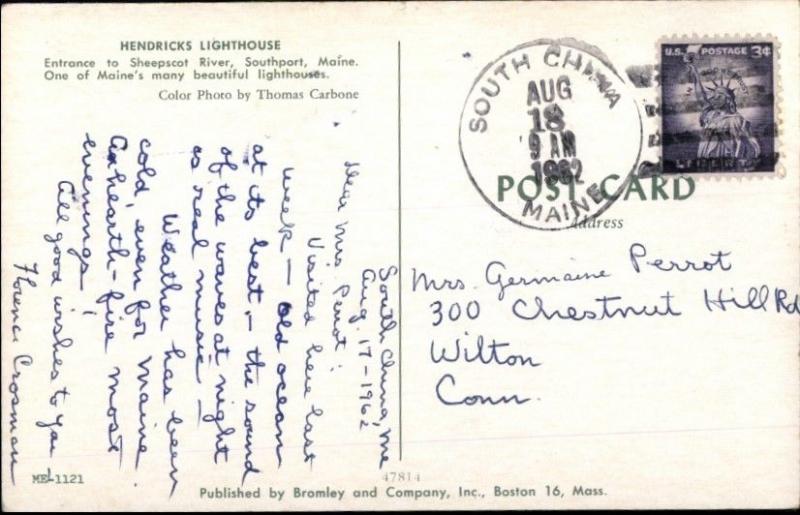 HENDRICKS LIGHTHOUSE
Entrance to Sheepscot River, Southport, Maine.
One of Maine's many beautiful lighthouses.
Color Photo by Thomas Carbone
South China, Me
Aug. 17-1962
Dear Mrs. Perrot:
Visited here last
week — Old ocean
at its best, — the sound
of the waves at night
is real music —
Weather has been
cold, even for Maine
An hearth-fire most
evenings!
All good wishes to you
Florence Crosman
SOUTH CHINA
AUG
18
9 AM
1962
MAINE
U.S. POSTAGE 3¢
IN GOD WE TRUST
LIBERTY
POST CARD
Address
Mrs. Germaine Perrot
300 Chestnut Hill Rd
Wilton
Conn.
ME-1121
47814
Published by Bromley and Company, Inc., Boston 16, Mass.